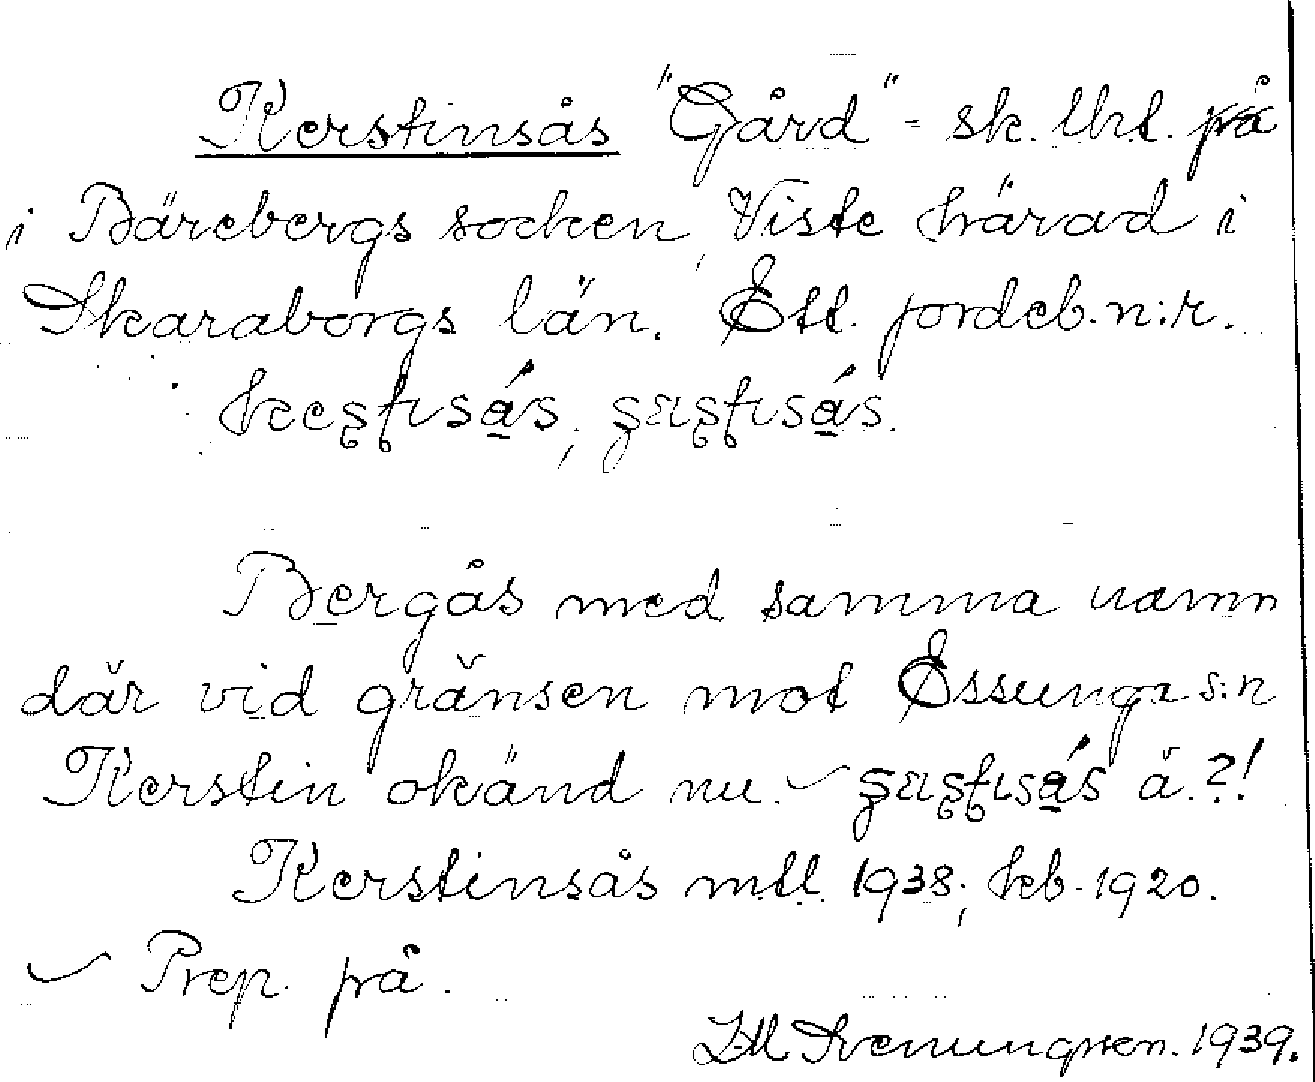 Kerstinsås "Gård" - sk. lht. på
i Bärebergs socken, Viste härad i
Skaraborgs län. Ett jordeb.n:r.
Bergås med samma namn
där vid gränsen mot Essunga s:n
Kerstin okänd nu. ä.?!
Kerstinsås mtl. 1938; keb. 1920.
Prep. på.
Svenungsson. 1939.